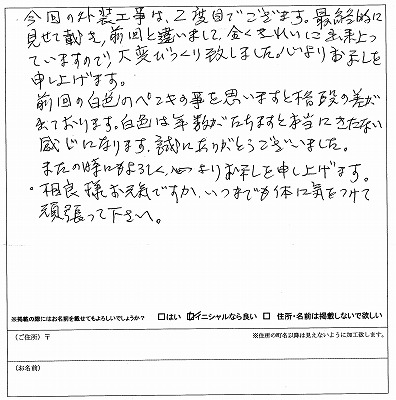 今回の外装工事は、2度目でございます。最終的に
見せて戴き、前回と違いまして、全くきれいに出来上っ
ていますので、大変びっくり致しました。心よりお礼を
申し上げます。
前回の白色のペンキの事を思いますと格段の差が
出ております。白色は年数がたちますと本当にきたない
感じになります。誠にありがとうございました。
またの時にもよろしく、心よりお礼を申し上げます。
・相良様お元気ですか、いつまでも体に気をつけて
頑張って下さい。
※掲載の際にはお名前を載せてもよろしいでしょうか? □はい ☑イニシャルなら良い □ 住所・名前は掲載しないで欲しい
(ご住所) 〒 ※住所の町名以降は見えないように加工致します。
(お名前)